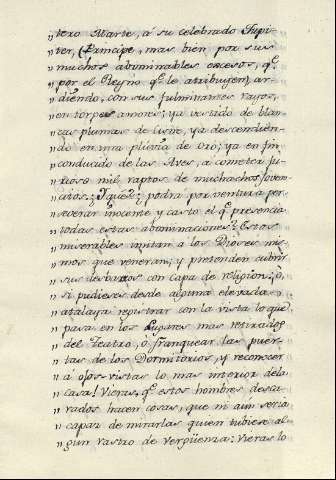 "tero Marte, á su celebrado Jupi-
"ter, (Principe, mas bien por sus
"muchos abominables excesos, qe.
"por el Reyno qe. le atribuyen) ar-
"diendo, con sus fulminantes rayos,
"en torpes amores; ya vestido de blan-
"cas plumas de cisne, ya descendien-
"do en una pluvia de oro; ya en fin
"conducido de las Aves, a cometer fu-
"rioso mil raptos de muchachos joven-
"citos. ¿Y que? ¿podrá por ventura per-
"severar inocente y casto el qe. presencia
"todas estas abominaciones? Estos
"miserables imitan a los Dioses mis-
"mos que veneran, y pretenden cubrir
"sus desbarros con capa de religion; ó
"si pudieses desde alguna elevada
"atalaya registrar con la vista lo que
"pasa en los Lugares mas retirados
"del Teatro, ó franquear las puer-
"tas de los Dormitorios, y reconocer
"á ojos-vistas lo mas interior dela
"casa! Vieras, qe. estos hombres desca-
"rados hacen cosas, que ni aun seria
"capaz de mirarlas quien tubiese al-
"gun rastro de vergüenza: Vieras lo